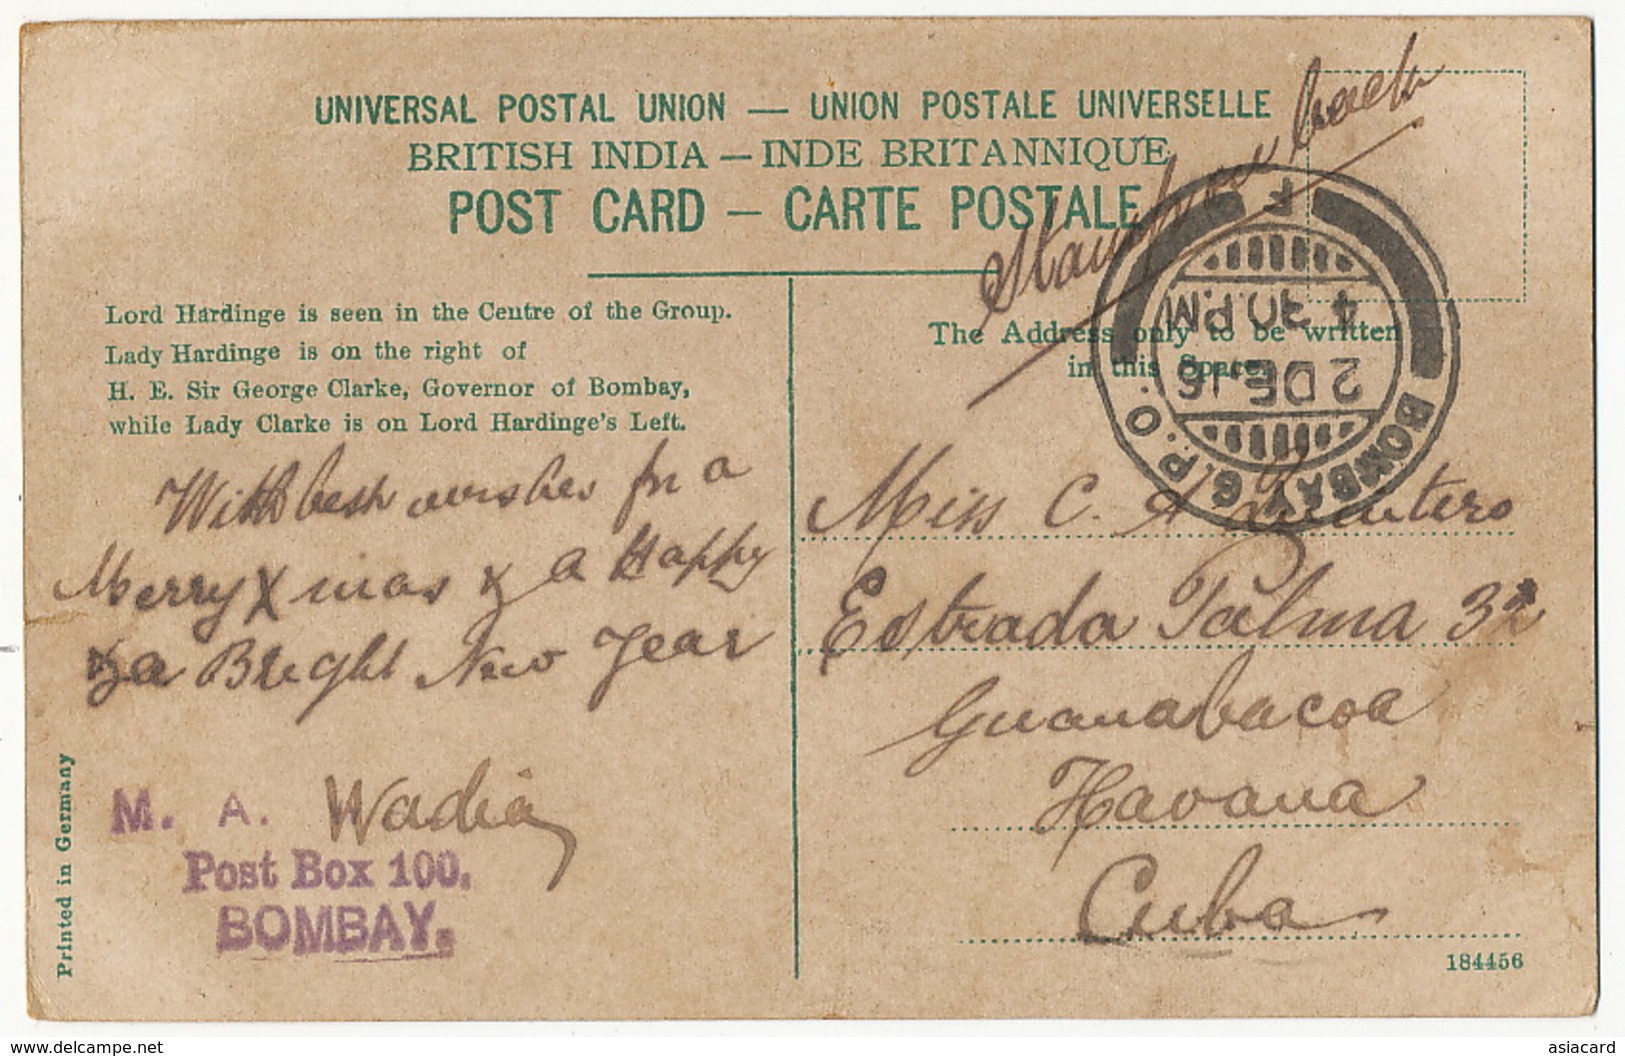 UNIVERSAL POSTAL UNION — UNION POSTALE UNIVERSELLE
BRITISH INDIA — INDE BRITANNIQUE
POST CARD — CARTE POSTALE
Stamp over back
Lord Hardinge is seen in the Centre of the Group.
Lady Hardinge is on the right of
H. E. Sir George Clarke, Governor of Bombay,
while Lady Clarke is on Lord Hardinge's Left.
With best wishes for a
Merry Xmas & a Happy
& a Bright New Year
M. A. Wadia
Post Box 100.
BOMBAY.
Printed in Germany
The Address only to be written
in this Space.
BOMBAY G.P.O.
F
4 30 P.M
2 DE. 16
Miss C. A. Quintero
Estrada Palma 32
Guanabacoa
Havana
Cuba
184456
asiacard
www.delcampe.net